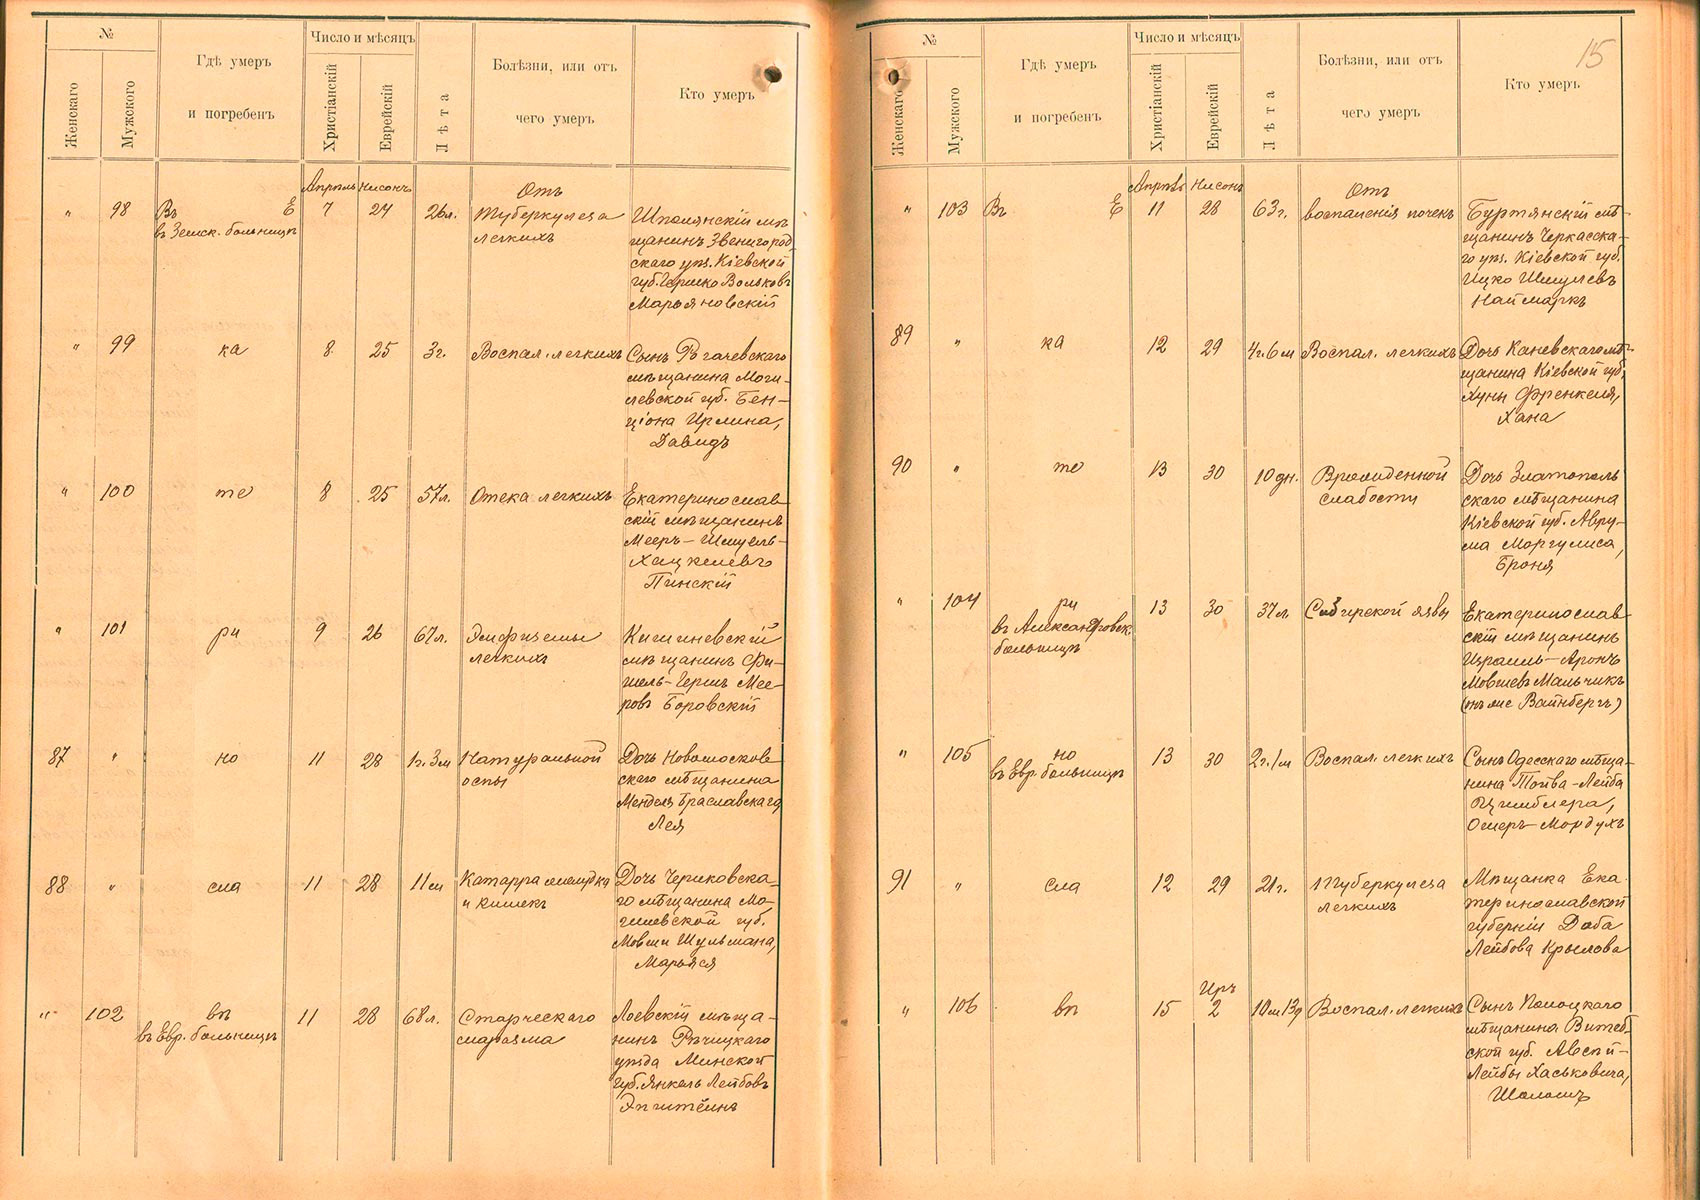 №
Женскаго
Мужского
Гдѣ умеръ
и погребенъ
Число и мѣсяцъ
Христіанскій
Еврейскій
Лѣта
Болѣзни, или отъ
чего умеръ
Кто умеръ
Апрѣль Нисонъ
Отъ
" 98 Въ Е 7 24 26л. Туберкулеза
въ Земск. больницѣ
легкихъ
Шполянскій мѣ-
щанинъ Звенигород
скаго уѣз. Кіевской
губ. Гершко Вольковъ
Марьяновскій
" 99 ка 8 25 3г. Воспал. легкихъ
Сынъ Рогачевскаго
мѣщанина Моги-
левской губ. Бен-
ціона Ирлина,
Давидъ
" 100 те 8 25 57л. Отека легкихъ
Екатеринослав-
скій мѣщанинъ
Мееръ-Шмуель-
Хацкелевъ
Пинскій
" 101 ри 9 26 67л. Эмфиземы
легкихъ
Кишиневскій
мѣщанинъ Фи-
шель-Гершъ Мее-
ровъ Боровскій
87 " но 11 28 1г. 3м Натуральной
оспы
Дочь Новомосков
скаго мѣщанина
Менделя Браславскаго
Лея
88 " сла 11 28 11м Катарра желудка
и кишекъ
Дочь Чериковска-
го мѣщанина Мо-
гилевской губ.
Мовши Шульмана,
Марьяся
" 102 въ 11 28 68л. Старческаго
въ Евр. больницѣ
маразма
Лоевскій мѣща-
нинъ Рѣчицкаго
уѣзда Минской
губ. Янкель Лейбовъ
Эпштейнъ
15
№
Женскаго
Мужского
Гдѣ умеръ
и погребенъ
Число и мѣсяцъ
Христіанскій
Еврейскій
Лѣта
Болѣзни, или отъ
чего умеръ
Кто умеръ
Апрѣль Нисонъ
Отъ
" 103 Въ Е 11 28 63г. воспаленія почекъ
Буртянскій мѣ-
щанинъ Черкасска-
го уѣз. Кіевской губ.
Ицко Шмулевъ
Наймаркъ
89 " ка 12 29 4г. 6м Воспал. легкихъ
Дочь Каневскаго мѣ-
щанина Кіевской губ,
Хуны Френкеля,
Хана
90 " те 13 30 10 дн. Врожденной
слабости
Дочь Златополь
скаго мѣщанина
Кіевской губ. Авру-
ма Моргулиса,
Броня
" 104 ри 13 30 37л Сибирской язвы
въ Александровск.
больницѣ
Екатеринослав
скій мѣщанинъ
Израиль-Аронъ
Мовшевъ Мальчикъ
(онъ же Вайнбергъ)
" 105 но 13 30 2г. 1м Воспал. легкихъ
въ Евр. больницѣ
Сынъ Одесскаго мѣща-
нина Тойва-Лейба
Цимблера,
Ошеръ-Мордухъ
91 " сла 12 29 21г. Туберкулеза
легкихъ
Мѣщанка Ека
теринославской
губерніи Доба
Лейбова Крылова
Иръ
" 106 въ 15 2 10м 13д Воспал. легкихъ
Сынъ Полоцкаго
мѣщанина Витеб-
ской губ. Авсѣй-
Лейбы Хаськовича,
Шоломъ